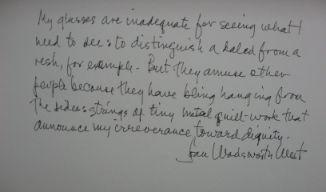 My glasses are inadequate for seeing what I
need to see: to distinguish a kalad from a
resh, for example. But they amuse other
people because they have bling hanging from
the sides: strings of tiny metal quill-work that
announce my irreverance toward dignity.
Joan Wadsworth West